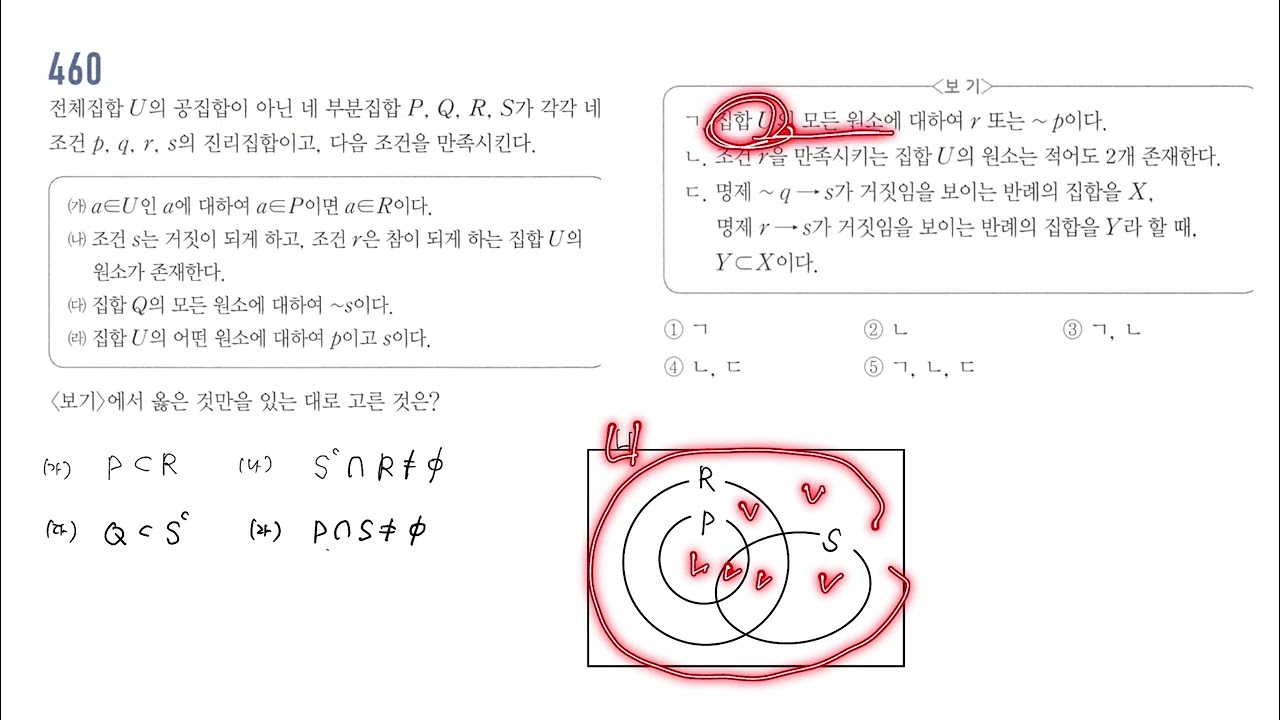 460
전체집합 U의 공집합이 아닌 네 부분집합 P, Q, R, S가 각각 네
조건 p, q, r, s의 진리집합이고, 다음 조건을 만족시킨다.
㈎ a∈U인 a에 대하여 a∈P이면 a∈R이다.
㈏ 조건 s는 거짓이 되게 하고, 조건 r은 참이 되게 하는 집합 U의
원소가 존재한다.
㈐ 집합 Q의 모든 원소에 대하여 ~s이다.
㈑ 집합 U의 어떤 원소에 대하여 p이고 s이다.
<보기>에서 옳은 것만을 있는 대로 고른 것은?
<보 기>
ㄱ 집합 U의 모든 원소에 대하여 r 또는 ~p이다.
ㄴ. 조건 r을 만족시키는 집합 U의 원소는 적어도 2개 존재한다.
ㄷ. 명제 ~q → s가 거짓임을 보이는 반례의 집합을 X,
명제 r → s가 거짓임을 보이는 반례의 집합을 Y라 할 때,
Y⊂X이다.
① ㄱ ② ㄴ ③ ㄱ, ㄴ
④ ㄴ, ㄷ ⑤ ㄱ, ㄴ, ㄷ
(가) P⊂R (나) Sᶜ∩R≠∅
(다) Q⊂Sᶜ (라) P∩S≠∅
U
R
P
S